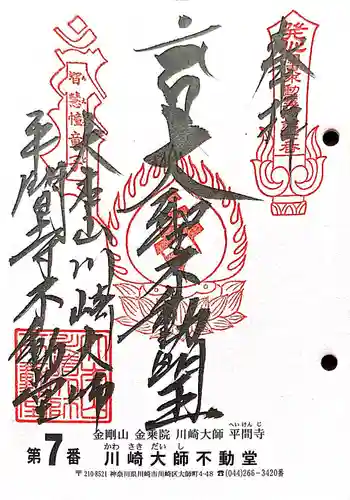 奉拝
大聖不動明王
大本山川崎大師
平間寺不動堂
智慧幢童子
金剛山 金乗院 川崎大師 平間寺
へいけんじ
かわさきだいし
第7番 川崎大師不動堂
〒210-8521 神奈川県川崎市川崎区大師町4-48 ☎(044)266-3420番